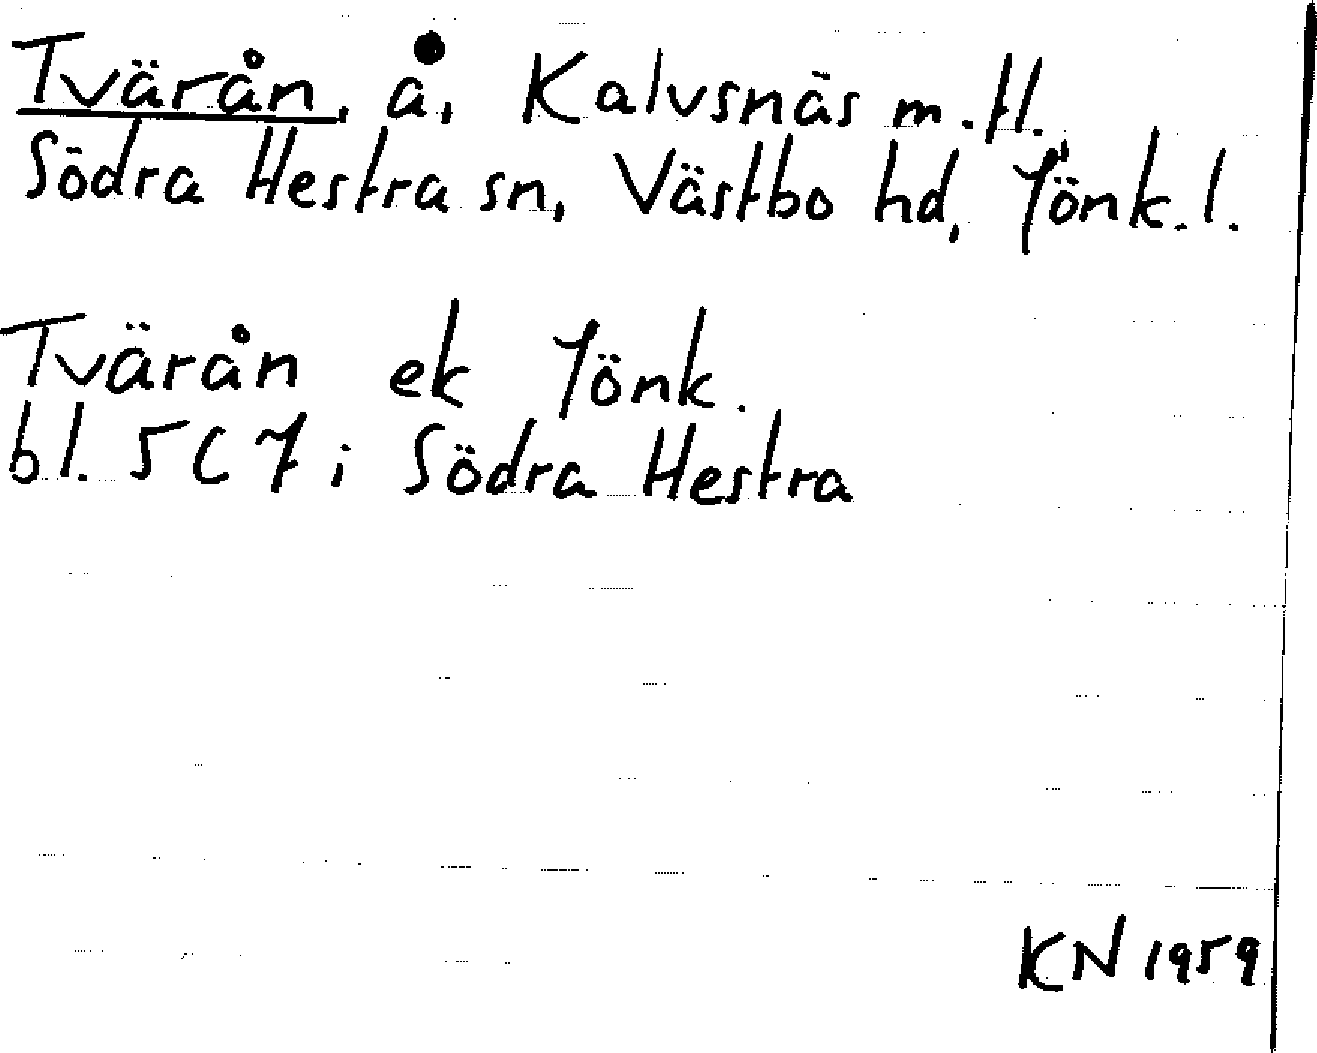 Tvärån, å, Kalvsnäs m.fl.
Södra Hestra sn, Västbo hd, Jönk.l.
Tvärån ek Jönk.
bl. 5C7 i Södra Hestra
KN 1959